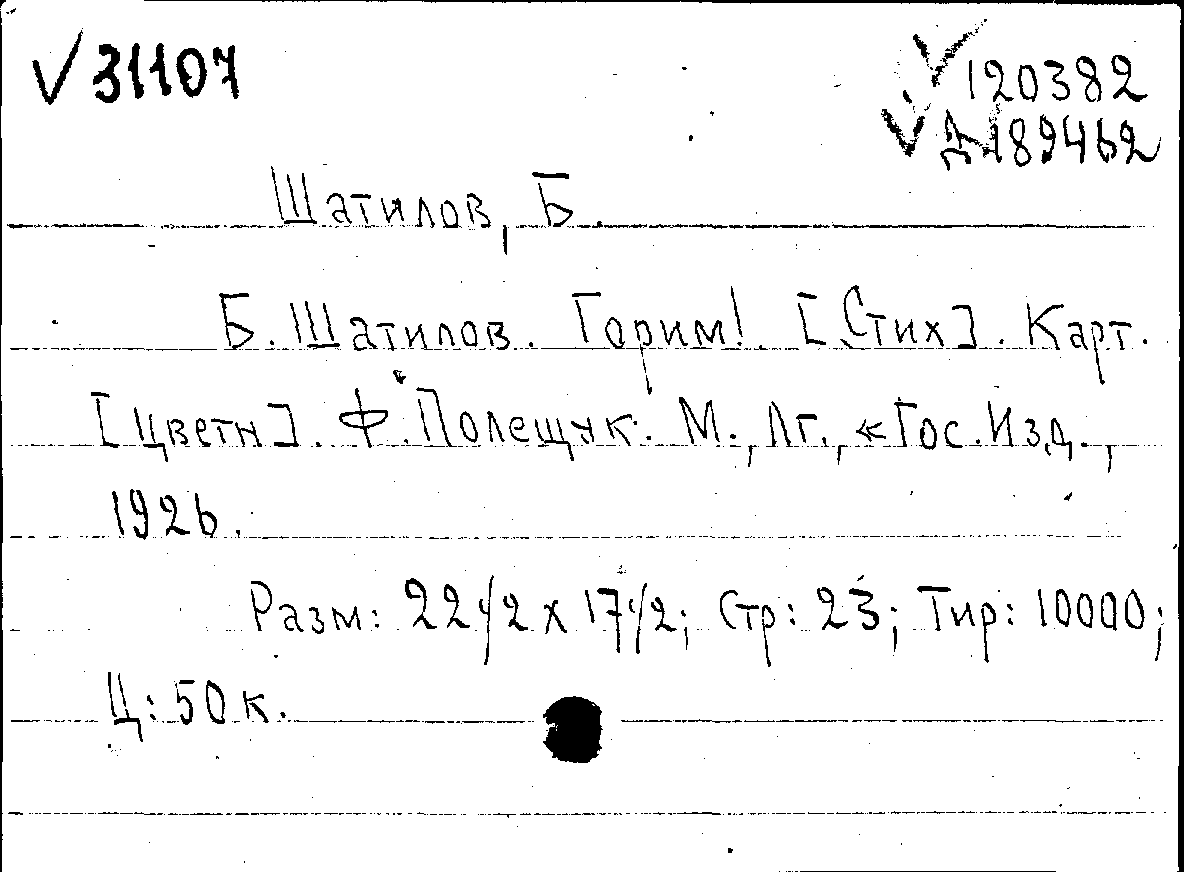 √31107
√120382
√Д189462
Шатилов, Б.
Б. Шатилов. Горим! [Стих]. Карт.
[Цветн]. Ф. Полещук. М., Лг., «Гос. Изд.,
1926.
Разм: 22 1/2 х 17 1/2; Стр: 23; Тир: 10000;
Ц: 50 к.